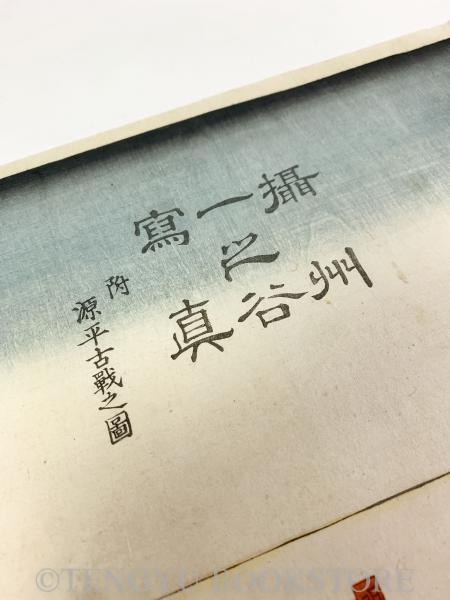 攝州
一之谷
寫真
附
源平古戰之圖
©TENGYU BOOKSTORE